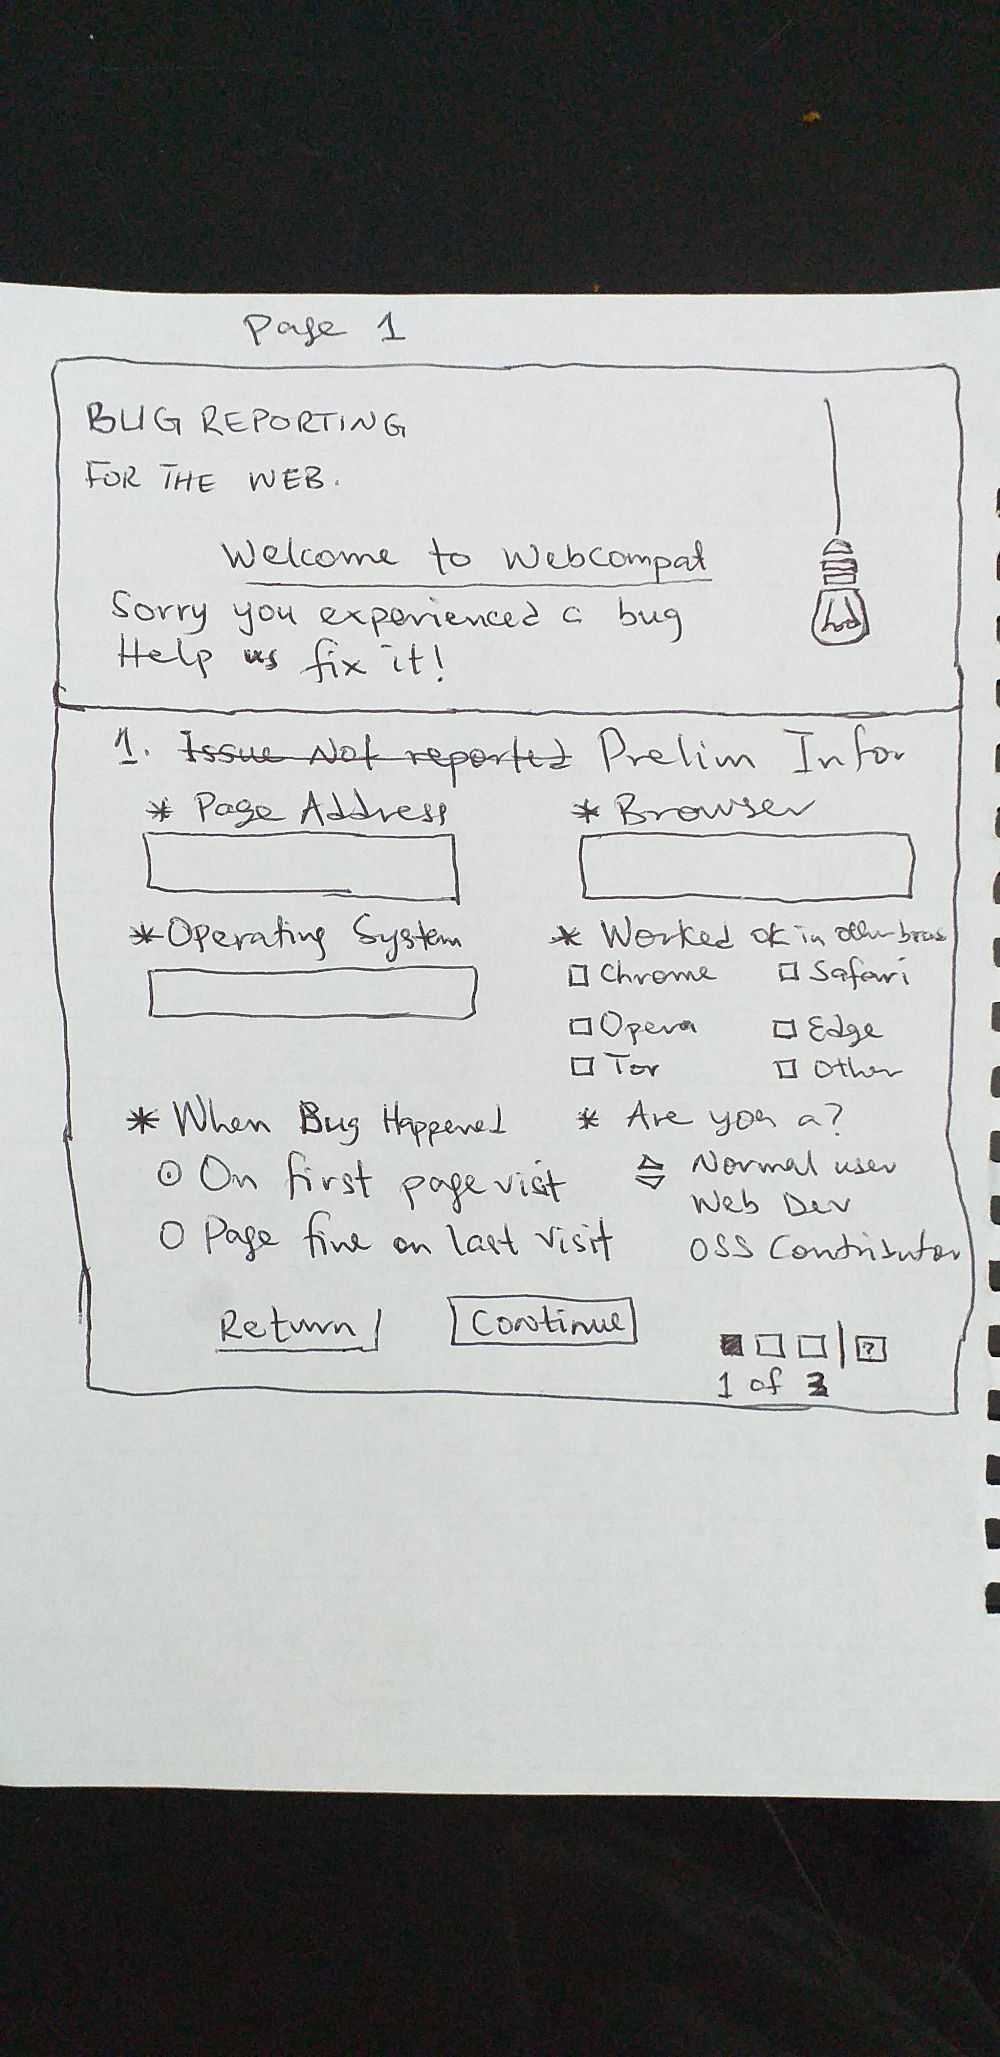 Page 1
BUG REPORTING
FOR THE WEB.
Welcome to Webcompat
Sorry you experienced a bug
Help us fix it!
1. Issue Not reported Prelim Infor
* Page Address
* Browser
* Operating System
* Worked ok in other brows
Chrome
Safari
Opera
Edge
Tor
Other
* When Bug Happened
On first page visit
Page fine on last visit
* Are you a?
Normal user
Web Dev
OSS Contributor
Return
Continue
?
1 of 3